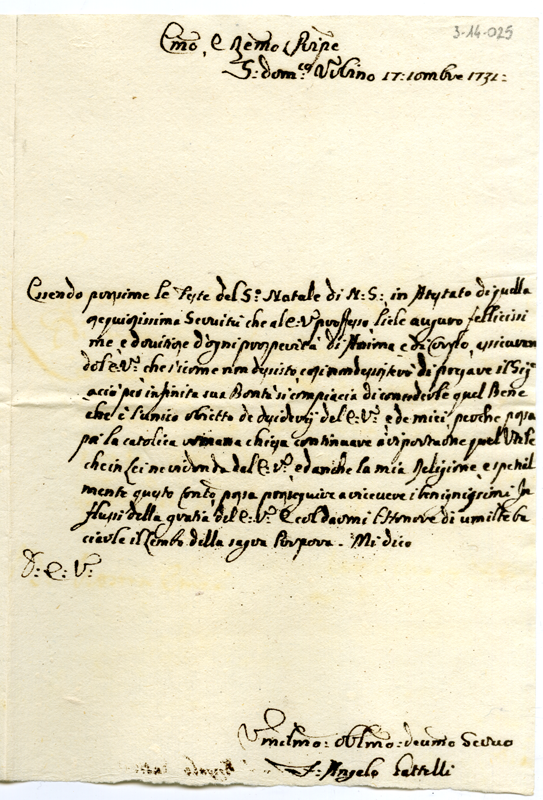 3-14-025
Emo, e Remo Prīpe
S: Dom:co Urbino 17: 10mbre 1731:
Essendo prossime le Feste del S:o Natale di N: S: in Attestato di quella
ossequiosissima Servitù che al e: V:a professo, liele auguro fellicissi
me e dovitiose d'ogni prosperità di Anima e di Corpo, assicuran
dol e: V:a che sicome non desisto cosi non desisterò di pregare il Sig:e
acio per infinita sua Bontà si compiacia di concederle quel Bene
che è l'unico obietto de desiderij del e: V:a e de miei, perche possa
la catolica romana chiesa continuare a riportarne quel Utile
che in Lei ne vidonda dal e: V:a ed anche la mia Religione e spetial
mente questo Conto possa proseguire a ricevere i benignissimi In
flussi della gratia del e: V:a e col darmi l'Honore di umilte ba
ciarle il Lembo della sagra Porpora. Mi dico
D: e: V:a
Umilmo: oblmo: deumo Servo
F: Angelo Lattelli